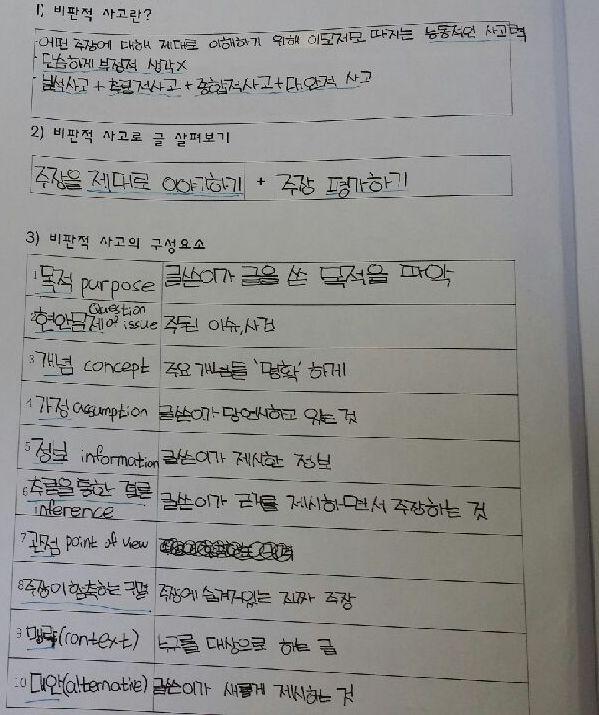 1) 비판적 사고란?
어떤 주장에 대해 제대로 이해하기 위해 이모저모 따지는 능동적인 사고력
단순하게 부정적 생각X
분석사고 + 추론적사고 + 종합적사고 + 대안적 사고
2) 비판적 사고로 글 살펴보기
주장을 제대로 이야기하기 + 주장 평가하기
3) 비판적 사고의 구성요소
1 목적 purpose 글쓴이가 글을 쓴 목적을 파악
2 현안문제 Question of issue 주된 이슈, 사건
3 개념 concept 주요 개념들 '명확' 하게
4 가정 assumption 글쓴이가 당연시하고 있는 것
5 정보 information 글쓴이가 제시한 정보
6 추론을 통한 결론 inference 글쓴이가 근거를 제시하면서 주장하는 것
7 관점 point of view
8 주장이 함축하는 귀결 주장에 숨겨있는 진짜 주장
9 맥락(context) 누구를 대상으로 하는 글
10 대안(alternative) 글쓴이가 새롭게 제시하는 것